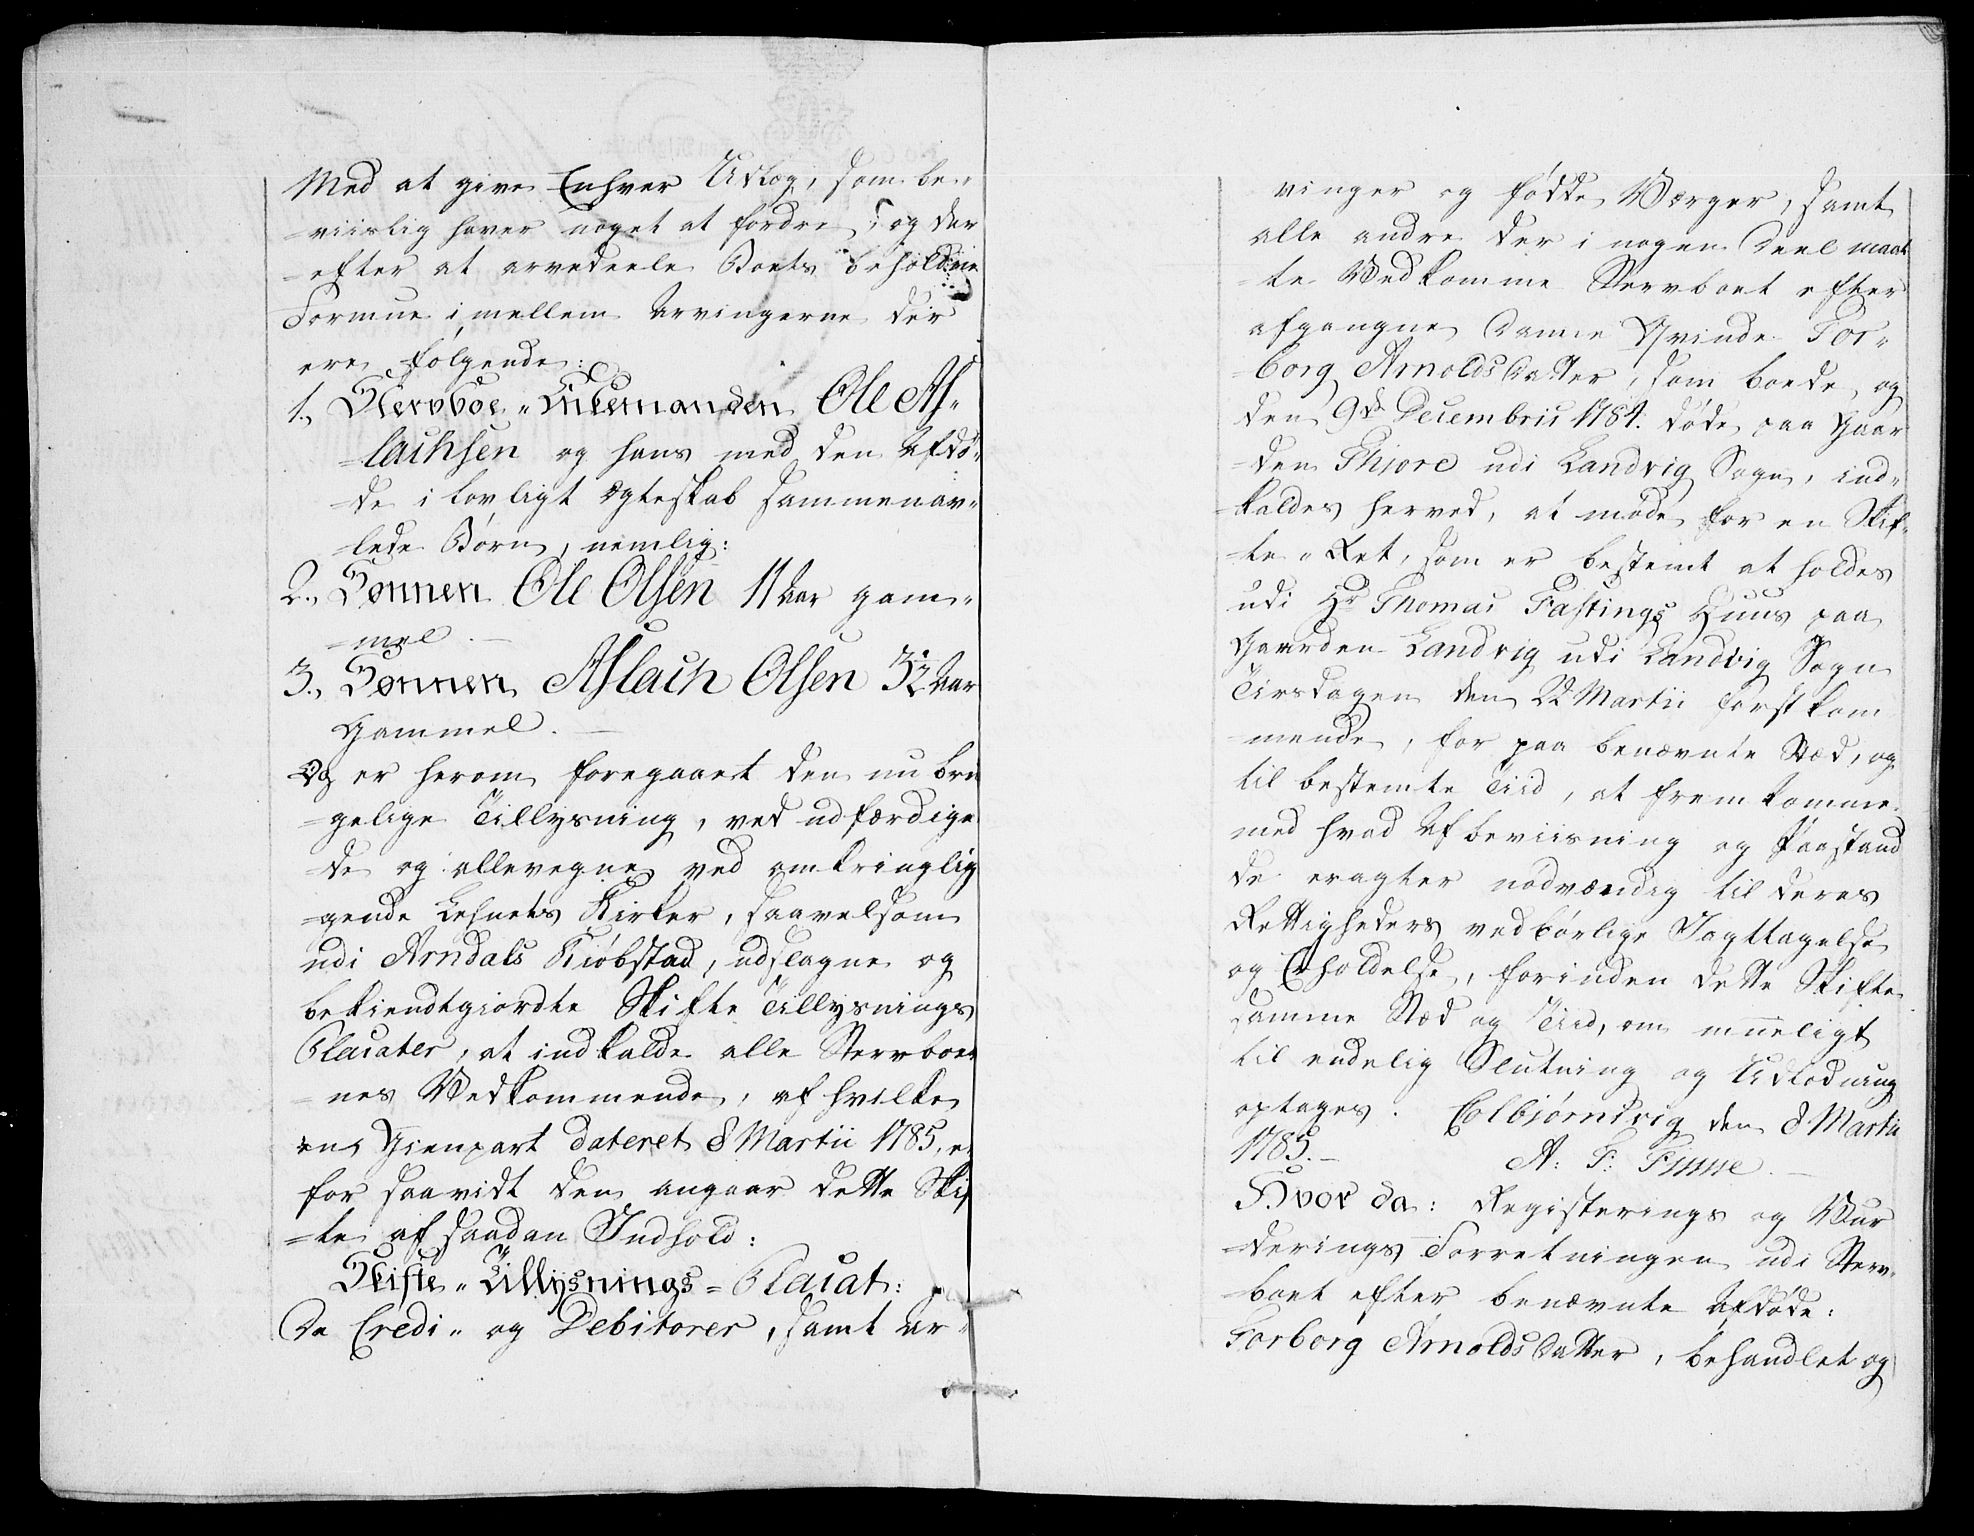 Med at give Enhver Udlæg, som be„
=viislig haver noget at fordre, og der
=efter at arvedeele Boets beholdne
Formue imellem Arvingerne der
ere følgende:
1., Stervboe„Enkemanden Ole As„
=lachsen og hans med den Afdø„
=de i lovligt Ægteskab sammenav„
=lede Børn, nemlig:
2., Sønnen Ole Olsen 11 Aar gam„
=mel. —
3., Sønnen Aslach Olsen 3½ Aar
Gammel. —
Og er herom foregaaet den nu bru
=gelige Tillysning, ved udfærdige
=de og allevegne ved omkringlig
=gende Lehnets Kirker, saavelsom
udi Arndals Kiøbstad, udslagne og
bekiendtgiordte Skifte Tillysnings
Placater, at indkalde alle Stervboer
=nes Vedkommende, af hvilke
en Gienpart dateret 8 Martii 1785, er
for saavidt den angaar dette Skif
=te af saadan Indhold:
Skifte„Tillysnings=Placat:
De Credi„ og Debitorer, samt Ar„
vinger og fødde Værger, samt
alle andre der i nogen Deel maat
=te Vedkomme Stervboet efter
afgangne Danne Qvinde Tor„
=borg Arnoldsdatter, som boede og
den 9de Decembris 1784. døde paa Gaar
=den Thiore udi Landvig Sogn, ind„
=kaldes herved, at møde for en Skif„
=te„Ret, som er bestemt at holdes
udi Hr Thomas Fastings Huus paa
Gaarden Landvig udi Landvig Sogn
Tirsdagen den 22 Martii førstkom
=mende, for paa benævnte Stæd, og
til bestemte Tiid, at fremkomme
med hvad Afbeviisning og Paastand
de eragter nødvændig til deres
Rettigheders vedbørlige Iagttagelse
og Erholdelse, forinden dette Skifte
samme Stæd og Tiid, om mueligt
til endelig Slutning og Udlodning
optages. Colbjørnsvig den 8 Martii
1785. — A: F: Finne. —
Hvor da: Registerings og Vur
=derings Forretningen udi Sterv„
=boet efter benævnte Afdøde:
Torborg Arnoldsdatter, behandlet og